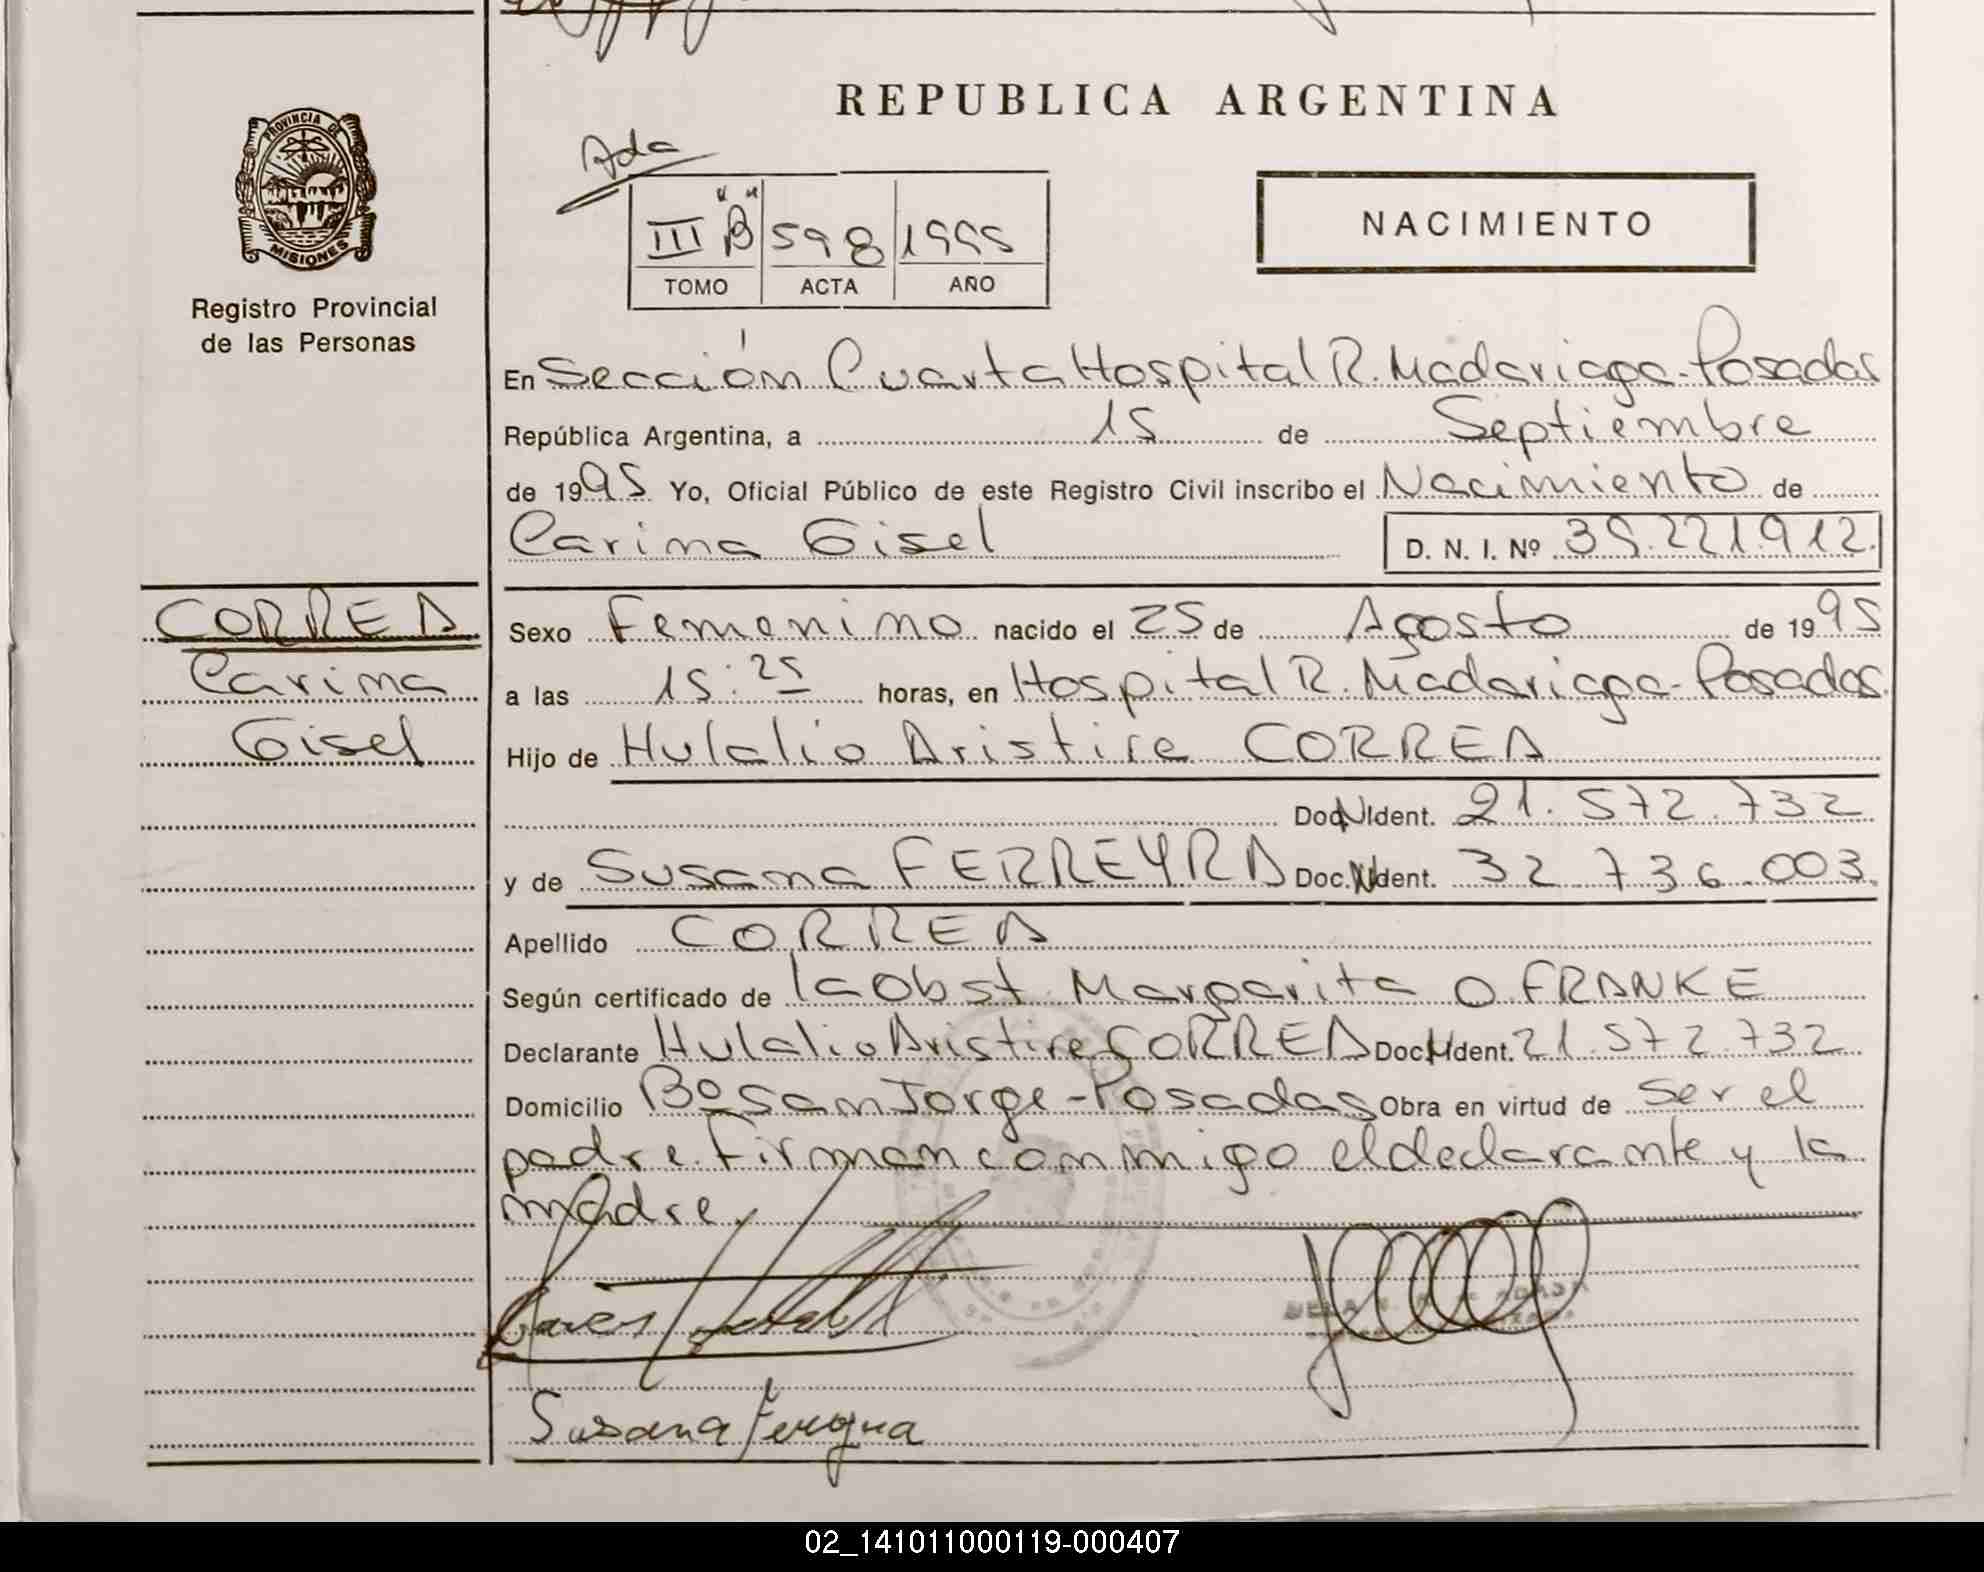 REPUBLICA ARGENTINA
PROVINCIA DE
MISIONES
Registro Provincial
de las Personas
Ada
III "B" 598 1995
TOMO ACTA AÑO
NACIMIENTO
En Sección Cuarta Hospital R. Madariaga-Posadas
República Argentina, a 15 de Septiembre
de 1995 Yo, Oficial Público de este Registro Civil inscribo el Nacimiento de
Carina Gisel D. N. I. Nº 39.221.912.
CORREA
Carina
Gisel
Sexo Femenino nacido el 25 de Agosto de 1995
a las 15:25 horas, en Hospital R. Madariaga-Posadas.
Hijo de Hulalio Aristire CORREA
Doc. N Ident. 21.572.732
y de Susana FERREYRA Doc. N Ident. 32.736.003.
Apellido CORREA
Según certificado de la Obst Margarita O. FRANKE
Declarante Hulalio Aristire CORREA Doc. N Ident. 21.572.732
Domicilio Bº San Jorge-Posadas Obra en virtud de ser el
padre. Firman conmigo el declarante y la
madre.
Susana Fereyra
02_141011000119-000407